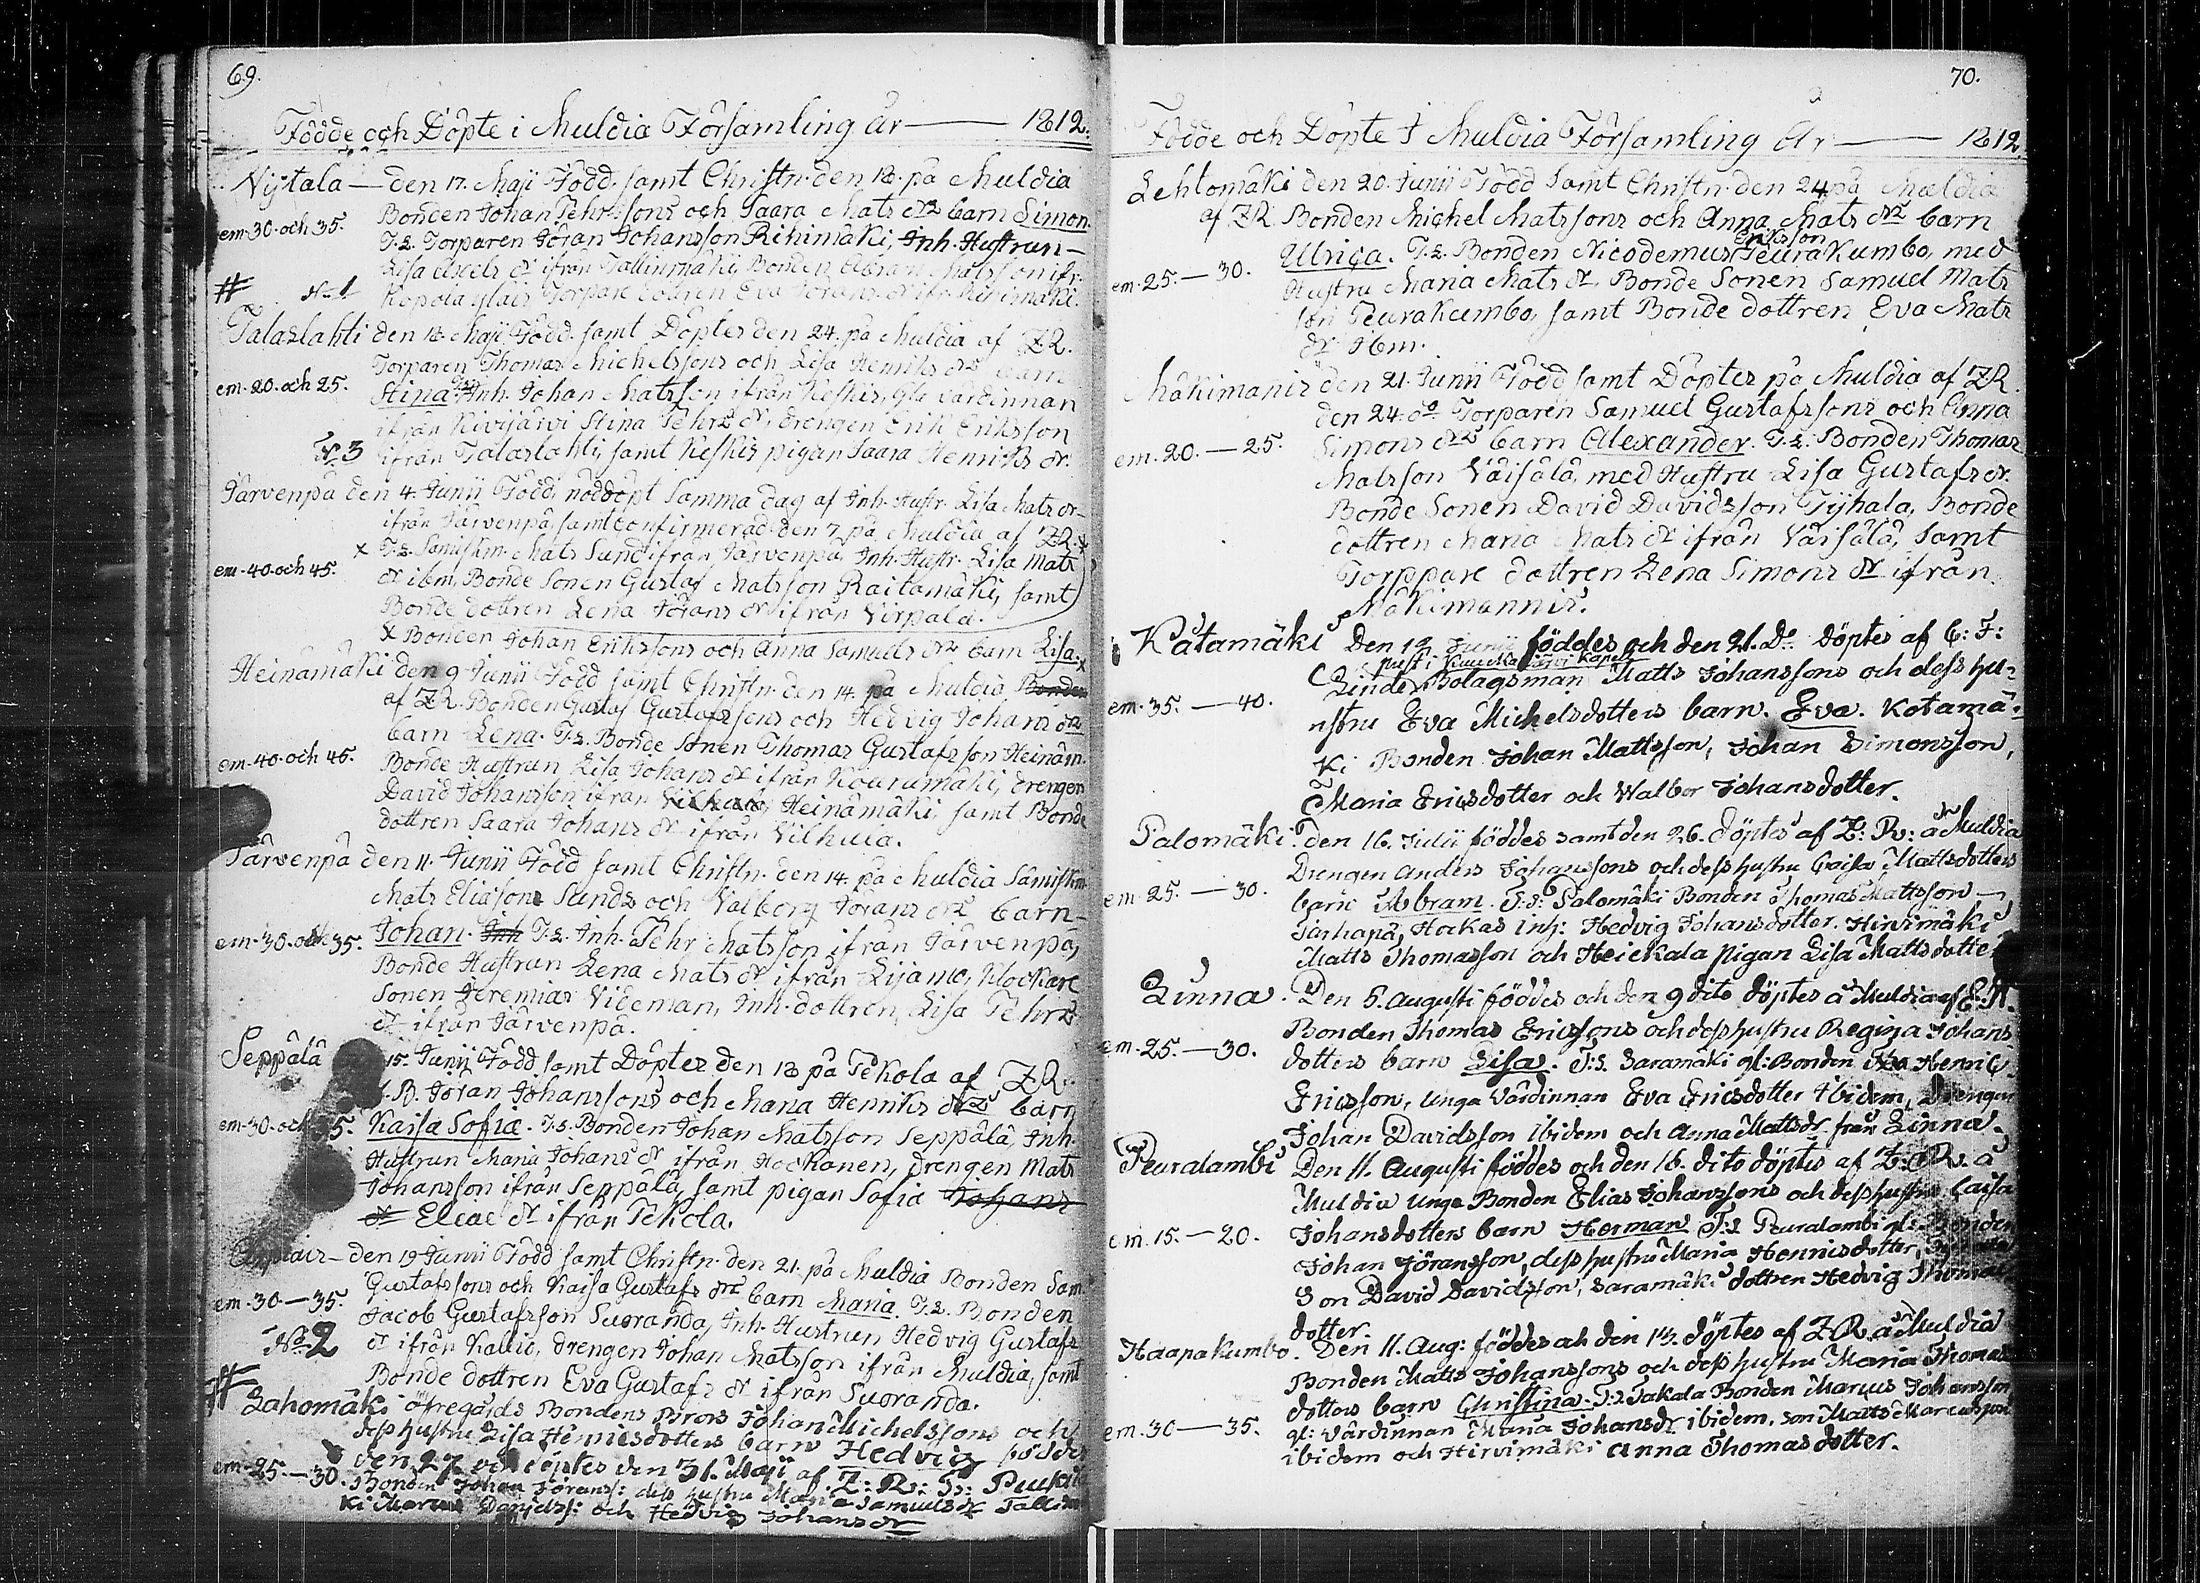 69.
Födde och Döpte i Muldia Församling År — 1812.
Nystala — den 17. Maji Född samt Christn. den 18. på Muldia
Bonden Johan Pehrssons och Saara Mats drs barn Simon.
em. 30. och 35.
T.s. Torparen Jöran Johansson Rihimäki, Inh. Hustrun
Lisa Axels dr ifrån Tallinmäki, Bonden Abram Matsson ifr.
# No 1
Kopola, Torpare dottren Eva Jörans dr ifr. Rihimäki.
Talaslahti den 18. Maji Född samt Döptes den 24. på Muldia af ZR.
Torparen Thomas Michelssons och Lisa Henriks drs barn
em. 20. och 25.
Stina. T.s. Inh. Johan Matsson ifrån Keskis, Gle värdinnan
ifrån Kivijärvi Stina Pehrs dr, drengen Erik Eriksson
No 3
ifrån Talaslahti, samt Keskis pigan Saara Henriks dr.
Järvenpä den 4. Junii Född, nöddöpt samma dag af Inh. Hustr. Lisa Mats dr
ifrån Järvenpä, samt confirmerad den 7. på Muldia af ZR. x
x T.s. Mats Sund ifrån Järvenpä, Inh. Hustr. Lisa Mats
em. 40. och 45.
dr ibm, Bonde Sonen Gustaf Matsson Raitamäki, samt
Bonde dottren Lena Jörans dr ifrån Virpala.
x Bonden Johan Erikssons och Anna Samuels drs barn Lisa. x
Heinämäki den 9 Junii Född samt Christn. den 14. på Muldia Bonden
af ZR. Bonden Gustaf Gustafssons och Hedvig Johans drs
barn Lena. T.s. Bonde Sonen Thomas Gustafsson Heinäm.
em. 40. och 45.
Bonde Hustrun Lisa Johans dr ifrån Kouramäki, drengen
David Johansson ifrån Heinämäki, samt Bonde
dottren Saara Johans dr ifrån Vilhula.
Järvenpä den 11. Junii Född samt Christn. den 14. på Muldia
Mats Eliasons Sunds och Valborg Jörans drs barn
em. 30. och 35.
Johan. Inh T.s. Inh. Pehr Matsson ifrån Järvenpä,
Bonde Hustrun Lena Mats dr ifrån Lijamo, Klockare
Sonen Jeremias Videman, Inh. dottren Lisa Pehrs
dr ifrån Järvenpä.
Seppälä 15. Junii Född samt Döptes den 18 på Pekola af ZR.
B. Jöran Johanssons och Maria Henriks drs barn
em. 30. och 35.
Kaisa Sofia. T.s. Bonden Johan Matsson Seppälä, Inh.
Hustrun Maria Johans dr ifrån Hockanen, drengen Mats
Johansson ifrån Seppälä, samt pigan Sofia Johans
dr Eleae dr ifrån Pekola.
den 19 Junii Född samt Christn. den 21. på Muldia Bonden Sam.
Gustafssons och Kaisa Gustafs drs barn Maria. T.s. Bonden
em. 30. — 35.
Jacob Gustafsson Suoranda, Inh. Hustrun Hedvig Gustafs
No 2
dr ifrån Kallio, drengen Johan Matsson ifrån Muldia, samt
Bonde dottren Eva Gustafs dr ifrån Suoranda.
#
Lahomäki öfregårds Bondens Brors Johan Michelssons och
dess hustru Lisa Henricsdotters barn Hedvig föddes
den 27 och döptes den 31. Maji af Z: R: T:
em. 25. — 30.
Bonden Johan Jörans: dess hustru Maria Samuels dr
ki Danjelss: och Hedvig Johans dr
70.
Födde och Döpte i Muldia Församling År — 1812.
Lehtomäki den 20. Junii Född samt Christn. den 24 på Muldia
af ZR Bonden Michel Matssons och Anna Mats drs barn
Eriksson
Ulrica. T.s. Bonden Nicodemus Peurakumbo, med
em. 25. — 30.
Hustru Maria Mats dr, Bonde Sonen Samuel Mats
son Peurakumbo, samt Bonde dottren Eva Mats
dr Ibm.
Mäkimanis den 21. Junii Född samt Döptes på Muldia af ZR.
den 24. do Torparen Samuel Gustafssons och Anna
em. 20. — 25.
Simons drs barn Alexander. T.s. Bonden Thomas
Matsson Väisälä, med Hustru Lisa Gustafs dr.
Bonde Sonen David Davidsson Tyhala, Bonde
dottren Maria Mats dr ifrån Väisälä, samt
Torppare dottren Lena Simons dr ifrån
Mäkimannis.
Kåtamäki Den 12 Junii föddes och den 21. Do Döptes af C: F:
Linder Bolagsman Matts Johanssons och dess hu-
em. 35. — 40.
nstru Eva Michelsdotters barn. Eva. Kotamä-
ki Bonden Johan Mattsson, Johan Simonsson,
Maria Ericsdotter och Walbor Johansdotter.
Palomäki. Den 16. Julii föddes samt den 26. döptes af Z: R: å Muldia
Drengen Anders Johanssons och dess hustru Caisa Mattsdotters
em. 25. — 30.
barn Abram. T:s: Palomäki Bonden Thomas Mattsson,
Hockas inh: Hedvig Johansdotter. Hirvimäki
Matts Thomasson och Heickala pigan Lisa Mattsdotter
Linna. Den 5. Augusti föddes och den 9 dito döptes å Muldia af
Bonden Thomas Ericssons och dess hustru Regina Johans
em. 25. — 30.
dotters barn Lisa. T:s. Saramäki gl: Bonden Henric
Ericsson, Unga Värdinnan Eva Ericsdotter ibidem, Drengen
Johan Davidsson ibidem och Anna Matts dr från Linna.
Peuralambi Den 11. Augusti föddes och den 16. dito döptes af Z: R: å
Muldia Unga Bonden Elias Johanssons och dess hustru Caisa
em. 15. — 20.
Johansdotters barn Herman T:s Peuralambi gl: Bonden
Johan Jöransson, dess hustru Maria Henricsdotter,
Son David Davidsson, Saramäki dottren Hedvig Thomas
dotter.
Haapakumbo. Den 11. Aug: föddes och den döptes af ZR. å Muldia
Bonden Matts Johanssons och dess hustru Maria Thomas
dotters barn Christina. T:s Jakala Bonden Marcus Johansson
em. 30 — 35.
gl: Värdinnan Maria Johans dr ibidem, son Matts Marcusson
ibidem och Hirvimäki Anna Thomasdotter.